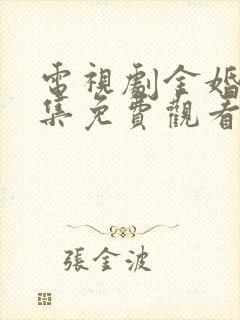 電視劇金婚
集免費觀看
張金波